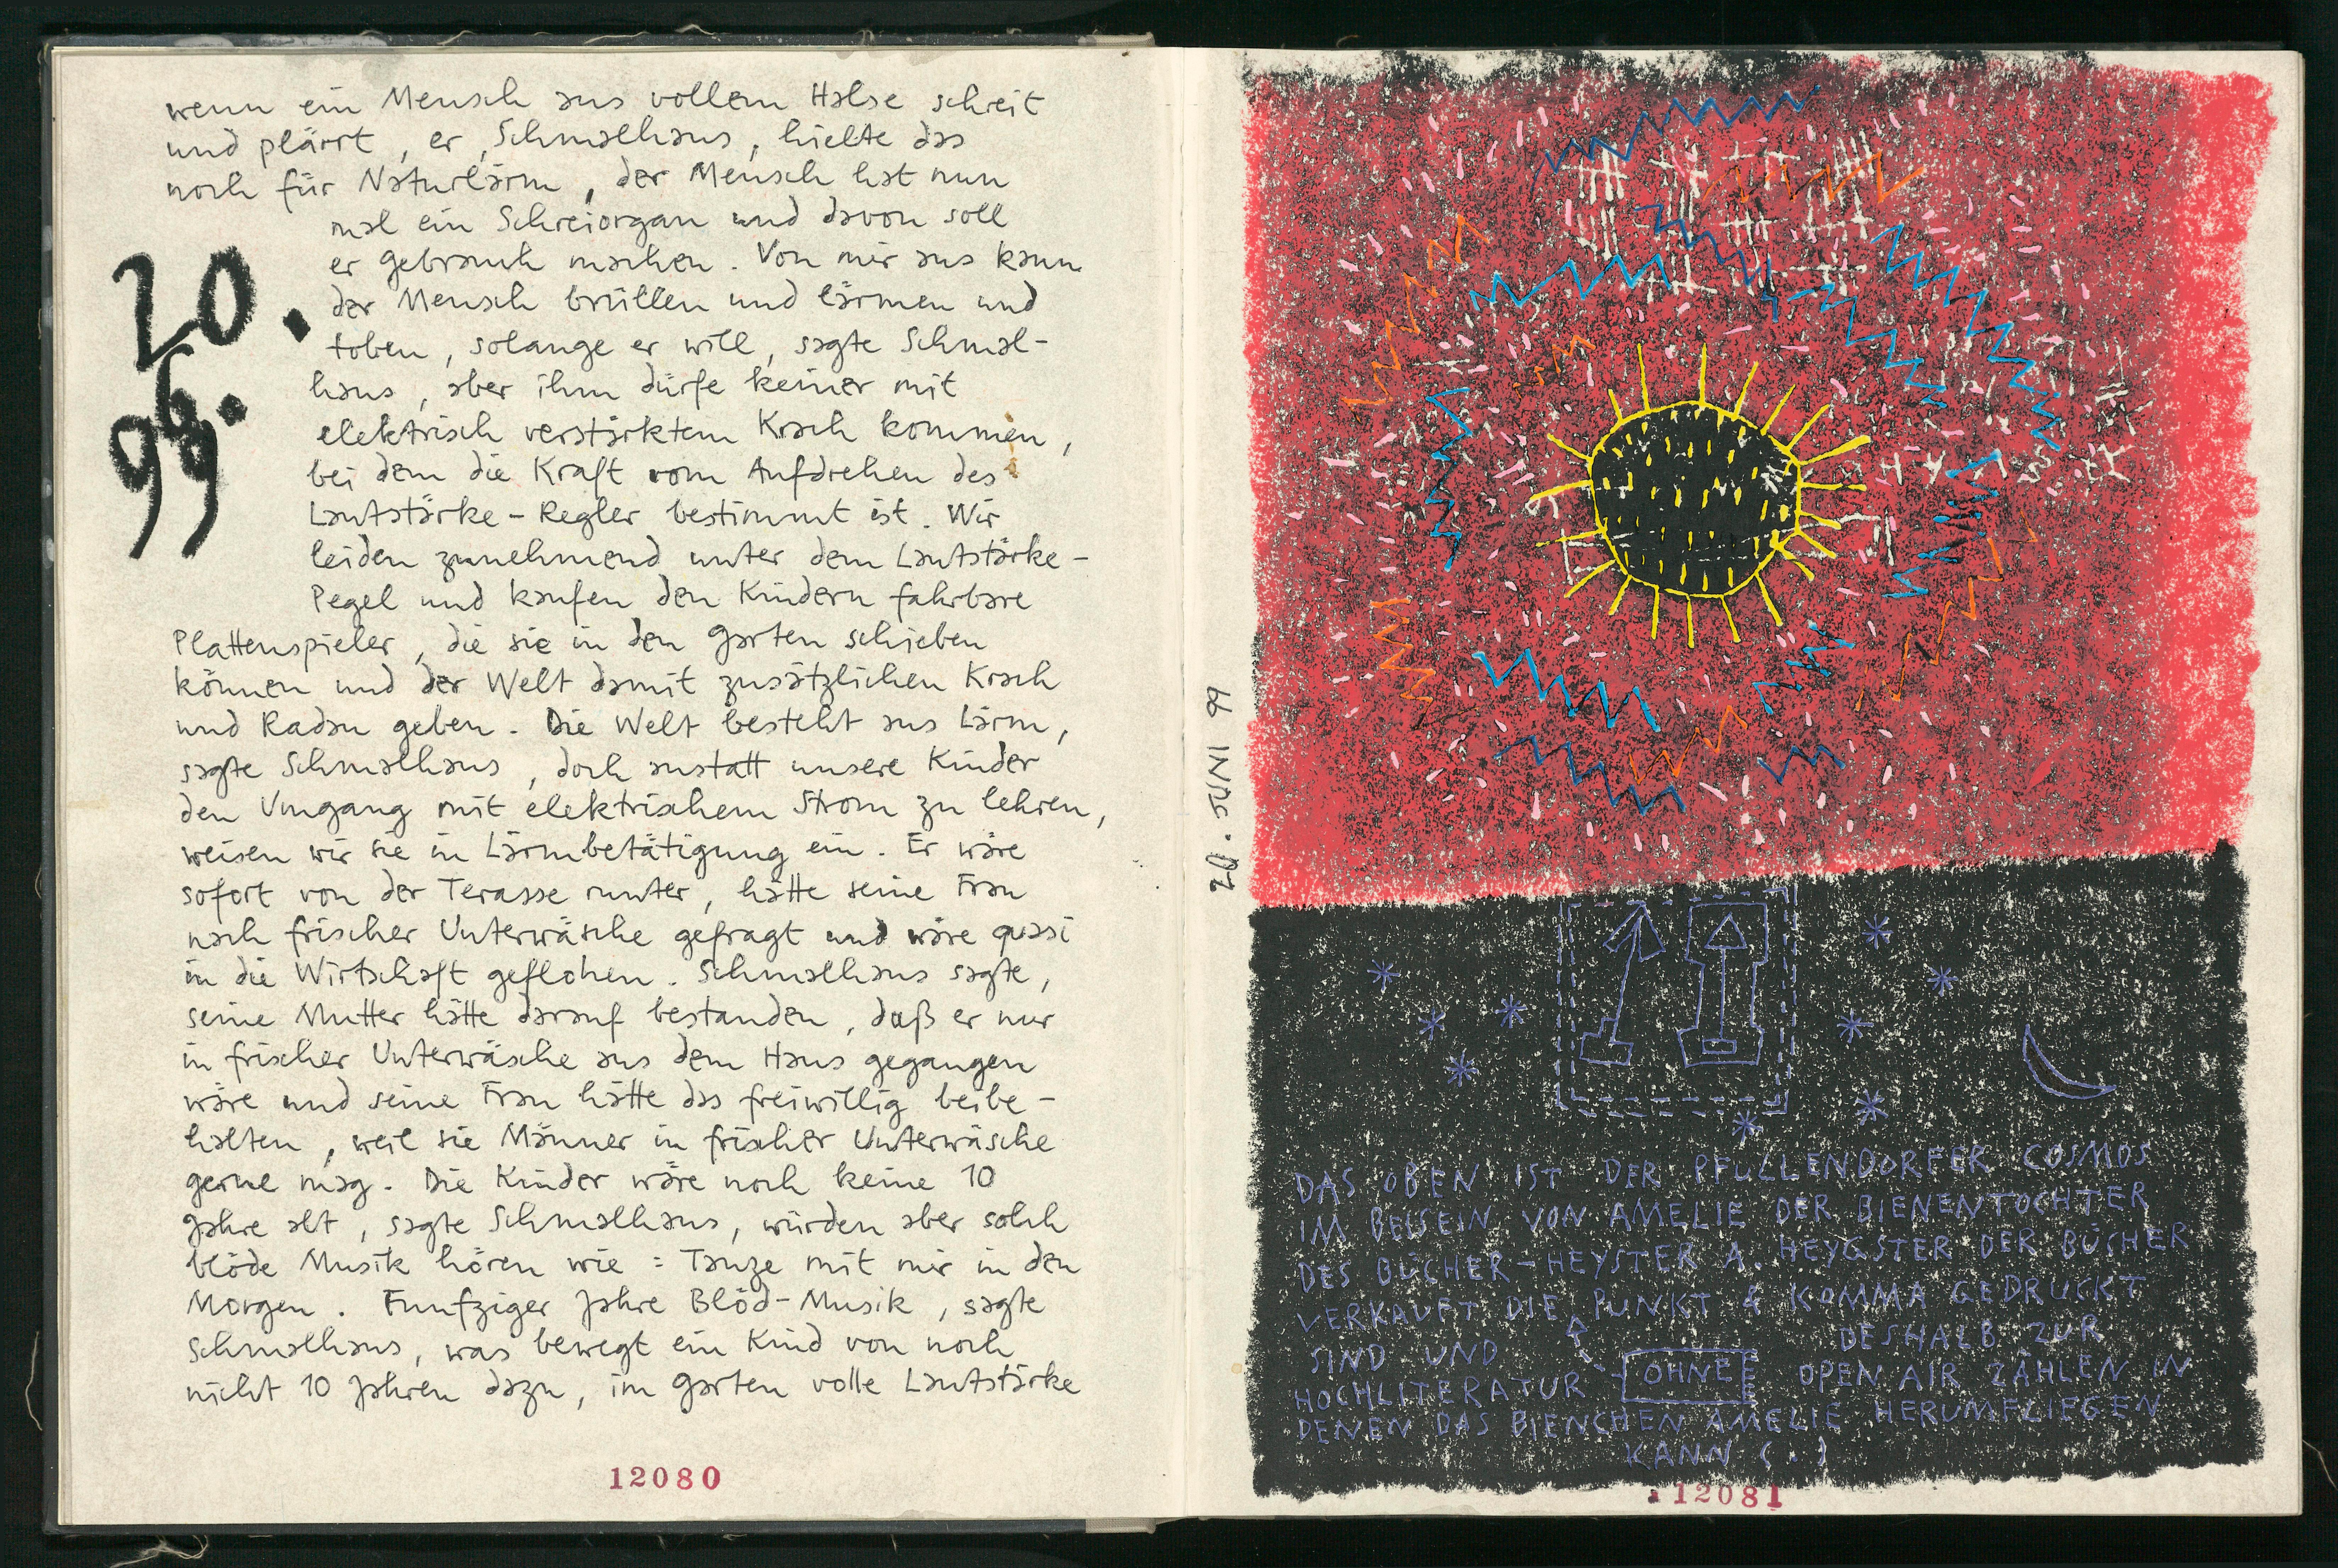 wenn ein Mensch aus vollem Halse schreit
und plärrt, er, Schmalhaus, hielte das
noch für Naturlärm, der Mensch hat nun
mal ein Schreiorgan und davon soll
er gebrauch machen. Von mir aus kann
der Mensch brüllen und lärmen und
toben, solange er will, sagte Schmal-
haus, aber ihm dürfe keiner mit
elektrisch verstärktem Krach kommen,
bei dem die Kraft vom Aufdrehen des
Lautstärke-Regler bestimmt ist. Wir
leiden zunehmend unter dem Lautstärke-
Pegel und kaufen den Kindern fahrbare
Plattenspieler, die sie in den Garten schieben
können und der Welt damit zusätzlichen Krach
und Radau geben. Die Welt besteht aus Lärm,
sagte Schmalhaus, doch anstatt unsere Kinder
den Umgang mit elektrischem Strom zu lehren,
weisen wir sie in Lärmbetätigung ein. Er wäre
sofort von der Terasse runter, hätte seine Frau
nach frischer Unterwäsche gefragt und wäre quasi
in die Wirtschaft geflohen. Schmalhaus sagte,
seine Mutter hätte darauf bestanden, daß er nur
in frischer Unterwäsche aus dem Haus gegangen
wäre und seine Frau hätte das freiwillig beibe-
halten, weil sie Männer in frischer Unterwäsche
gerne mag. Die Kinder wäre noch keine 10
Jahre alt, sagte Schmalhaus, würden aber solch
blöde Musik hören wie: Tanze mit mir in den
Morgen. Funfziger Jahre Blöd-Musik, sagte
Schmalhaus, was bewegt ein Kind von noch
nicht 10 Jahren dazu, im Garten volle Lautstärke
20.
6.
99
12080
20. JUNI 99
DAS OBEN IST DER PFULLENDORFER COSMOS
IM BEISEIN VON AMELIE DER BIENENTOCHTER
DES BÜCHER-HEYSTER A. HEYGSTER DER BÜCHER
VERKAUFT DIE PUNKT & KOMMA GEDRUCKT
SIND UND DESHALB ZUR
HOCHLITERATUR OHNE OPEN AIR ZÄHLEN IN
DENEN DAS BIENCHEN AMELIE HERUMFLIEGEN
KANN (.)
12081